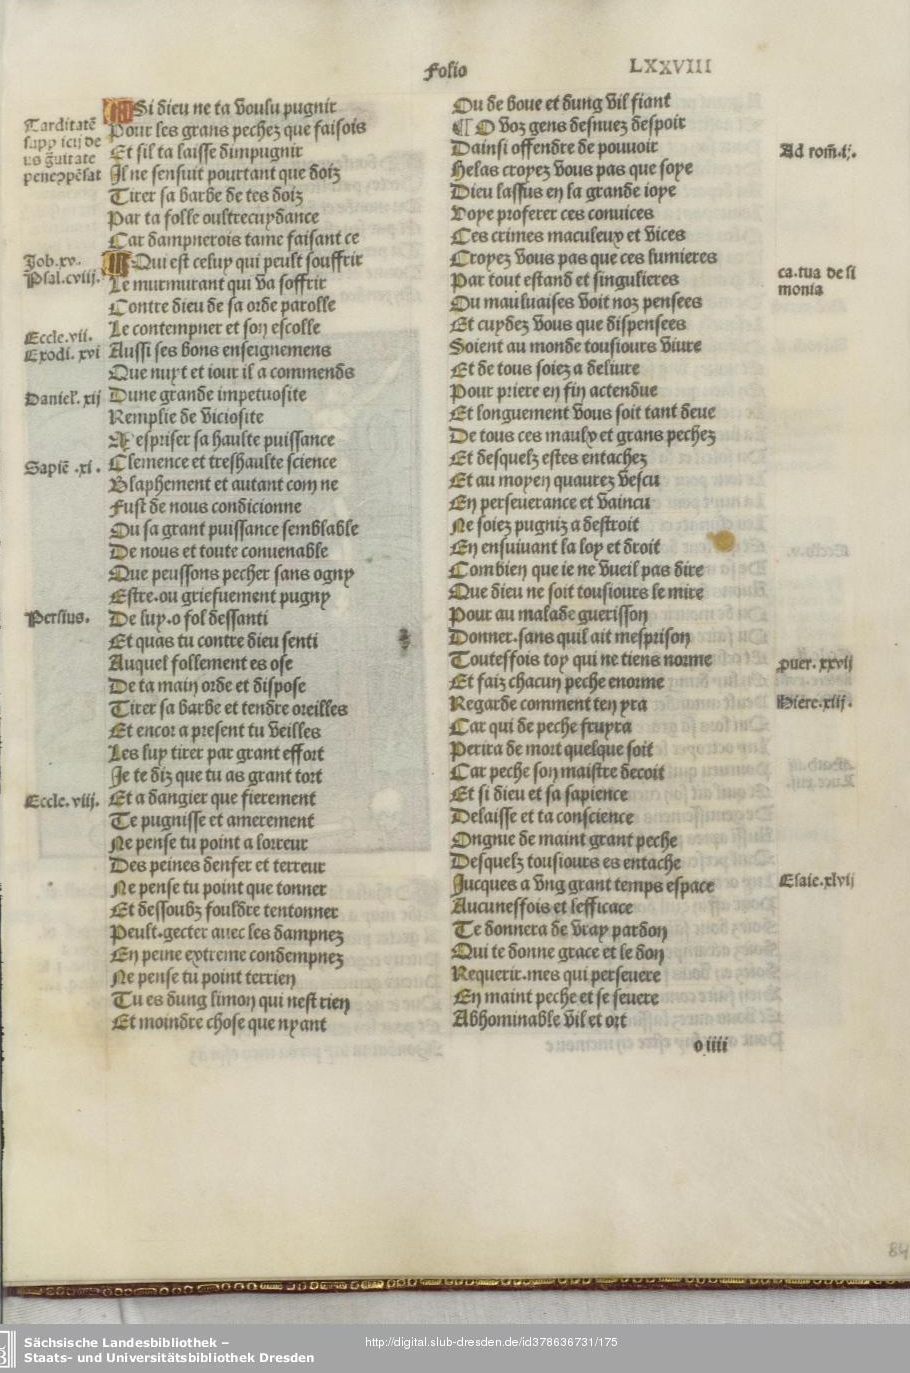 Folio
LXXVIII
Tarditatē
supplicij de
us g̃uitate
pene ↄpēsat
Job.xv.
Psal.cviij.
Eccle.vii.
Exodi.xvi
Daniel.xij
Sapiē.xi.
Persius.
Eccle.viij.
Si dieu ne ta voulu pugnir
Pour les grans pechez que faisois
Et sil ta laisse dimpugnir
Il ne sensuit pourtant que doiz
Tirer sa barbe de tes doiz
Par ta folle oultrecuydance
Car dampnerois tame faisant ce
Qui est celuy qui peult souffrir
Le murmurant qui va soffrir
Contre dieu de sa orde parolle
Le contempner et son escolle
Aussi ses bons enseignemens
Que nuyt et iour il a commends
Dune grande impetuosite
Remplie de viciosite
Mespriser sa haulte puissance
Clemence et treshaulte science
Blaphement et autant comme
Fust de nous condicionne
Ou sa grant puissance semblable
De nous et toute conuenable
Que peussons pecher sans ogny
Estre.ou griefuement pugny
De luy.o fol dessanti
Et quas tu contre dieu senti
Auquel follement es ose
De ta main orde et dispose
Tirer sa barbe et tendre oreilles
Et encor a present tu veilles
Les luy tirer par grant effort
Je te diz que tu as grant tort
Et a dangier que fierement
Te pugnisse et amerement
Ne pense tu point a lorreur
Des peines denfer et terreur
Ne pense tu point que tonner
Et dessoubz fouldre tentonner
Peult.gecter auec les dampnez
En peine extreme condempnez
Ne pense tu point terrien
Tu es dung limon qui nest rien
Et moindre chose que nyant
Ou de boue et dung vil fiant
¶ O voz gens desnuez despoir
Dainsi offendre de pouuoir
Helas croyez vous pas que soye
Dieu lassus en la grande ioye
Voye proferer ces conuices
Ces crimes maculeux et vices
Croyez vous pas que ces lumieres
Par tout estand et singulieres
Ou mauluaises voit noz pensees
Et cuydez vous que dispensees
Soient au monde tousiours viure
Et de tous soiez a deliure
Pour priere en fin actendue
Et longuement vous soit tant deue
De tous ces maulx et grans pechez
Et desquelz estes entachez
Et au moyen quaurez vescu
En perseuerance et vaincu
Ne soiez pugniz a destroit
En ensuiuant la loy et droit
Combien que ie ne vueil pas dire
Que dieu ne soit tousiours le mire
Pour au malade guerison
Donner.sans quil ait mesprison
Toutesfois toy qui ne tiens norme
Et faiz chacun peche enorme
Regarde comment ten yra
Car qui de peche fruyra
Perira de mort quelque soit
Car peche son maistre decoit
Et si dieu et sa sapience
Delaisse et ta conscience
Ongnie de maint grant peche
Desquelz tousiours es entache
Jucques a vng grant temps espace
Aucunesfois et lefficace
Te donnera de vray pardon
Qui te donne grace et le don
Requerir.mes qui perseuere
En maint peche et se seuere
Abhominable vil et ort
o iiii
Ad rom̃.ij.
ca.tua de si
monia
puer.xxvij
Hiere.xiij.
Esaie.xlvij
84
Sächsische Landesbibliothek –
Staats- und Universitätsbibliothek Dresden
http://digital.slub-dresden.de/id378636731/175